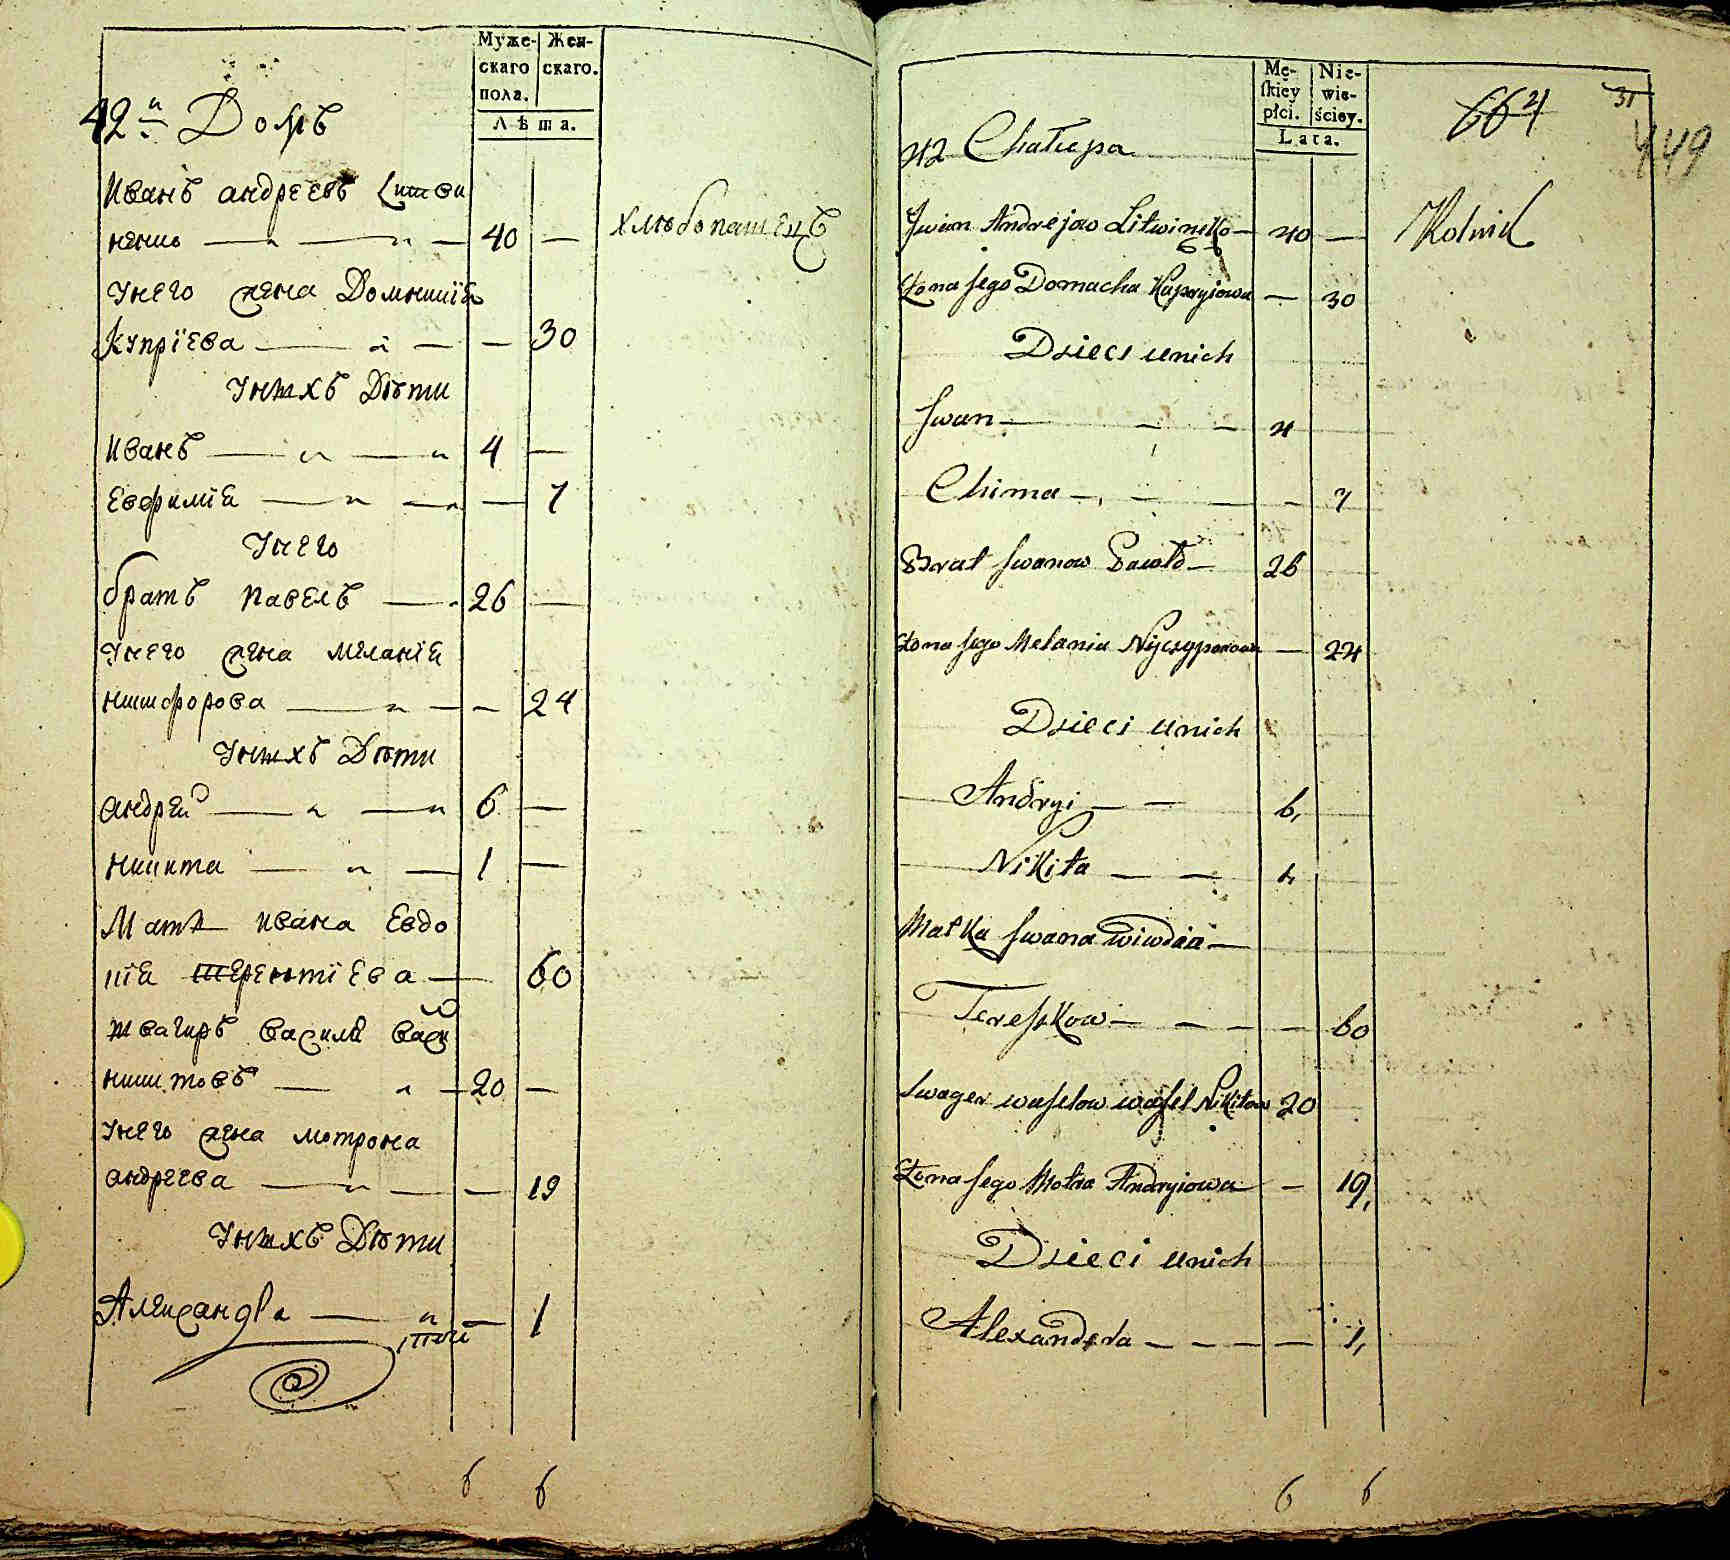 Муже-
скаго
пола.
Жен-
скаго.
Лѣта.
42й Домъ
Иванъ андреевъ Литви
ненко 40 —
Унего жена Домникїа
Купрїева — 30
Унихъ Дѣти
Иванъ 4 —
Евфимїа — 7
Унего
братъ павелъ 26 —
Унего жена меланїа
никифорова — 24
Унихъ Дѣти
андрей 6 —
никита 1 —
Мать ивана Евдо
кїа терентїева 60
швагиръ василий
никитовъ 20 —
Унего жена мотрона
андреева — 19
Унихъ Дѣти
Александра — 1
6 6
Хлѣбопашецъ
Mę-
skiey
płci.
Nie-
wie-
ściey.
Lata.
42 Chałupa
664
31
449
Iwan Andrejow Litwinenko 40 — Rolnik
Żona Jego Domacha Kupryjowa — 30
Dzieci unich
Iwan 4
Chima — 7
Brat Iwanow Pawło 26
Żona Jego Melania Nyczyporowa — 24
Dzieci unich
Andryi 6
Nikita 1
Matka Iwana Wiwdia
Tereszkowa — 60
Swager Wasilow Wasil Nikitow 20
Żona Jego Motra Andryiowa — 19
Dzieci unich
Alexandera — 1
6 6